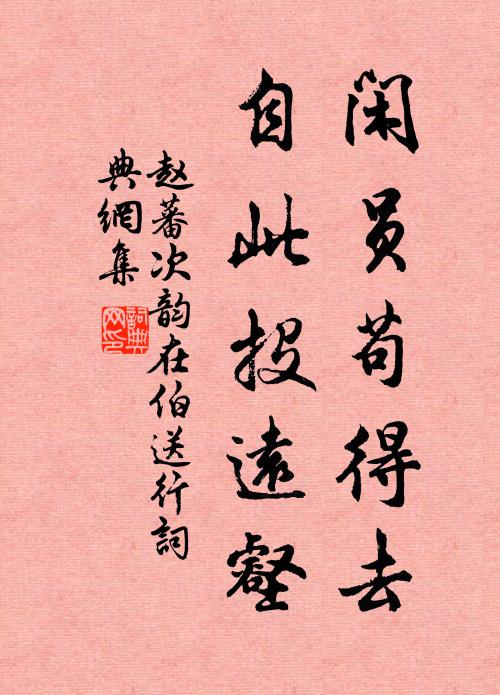 閑员苟得去
自此投遠壑
赵蕃次韵在伯送行詞
典網集
詞典
网印